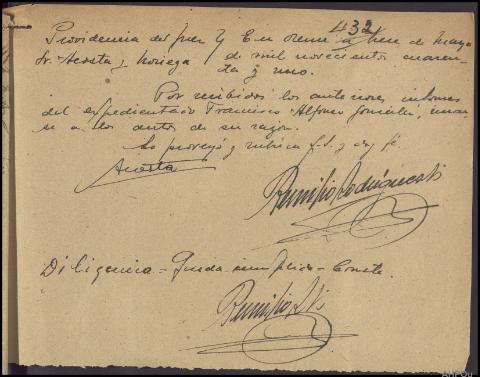 432
Providencia del Juez } En Orense a tres de Mayo
Sr. Acosta y Noriega } de mil novecientos cuaren-
ta y uno.
Por recibidos los anteriores informes
del expedientado Francisco Alfonso González, únan-
se a los autos de su razón.
Lo proveyó y rubrica S.S. y doy fé.
Acosta
Remigio Rodríguez
Diligencia = Queda cumplido = Conste.
Remigio